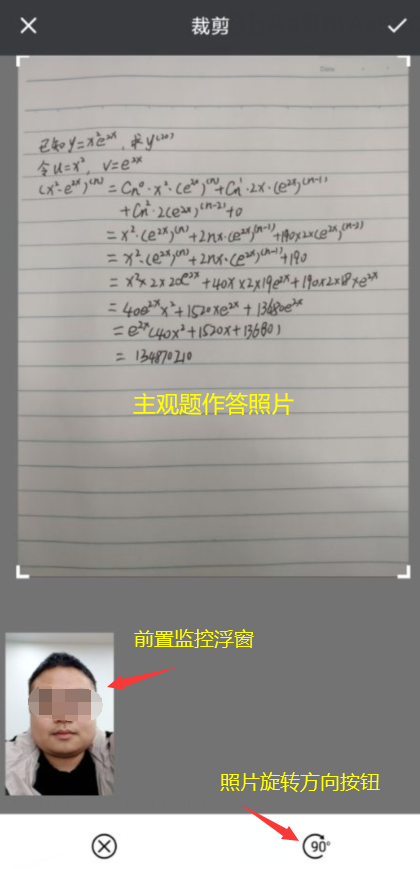 裁剪
Date:
已知y=x²e²ˣ, 求y⁽²⁰⁾
令u=x², v=e²ˣ
(x²·e²ˣ)⁽ⁿ⁾=Cn⁰·x²·(e²ˣ)⁽ⁿ⁾+Cn¹·2x·(e²ˣ)⁽ⁿ⁻¹⁾
+Cn²·2(e²ˣ)⁽ⁿ⁻²⁾+0
=x²·(e²ˣ)⁽ⁿ⁾+2nx·(e²ˣ)⁽ⁿ⁻¹⁾+190×2×(e²ˣ)⁽ⁿ⁻²⁾
=x²·(e²ˣ)⁽ⁿ⁾+2nx·(e²ˣ)⁽ⁿ⁻¹⁾+190
=x²×2×20e²ˣ+40x×2×19e²ˣ+190×2×18×e²ˣ
=40e²ˣx²+1520xe²ˣ+13680e²ˣ
=e²ˣ(40x²+1520x+13680)
=134870210
主观题作答照片
前置监控浮窗
照片旋转方向按钮
90°